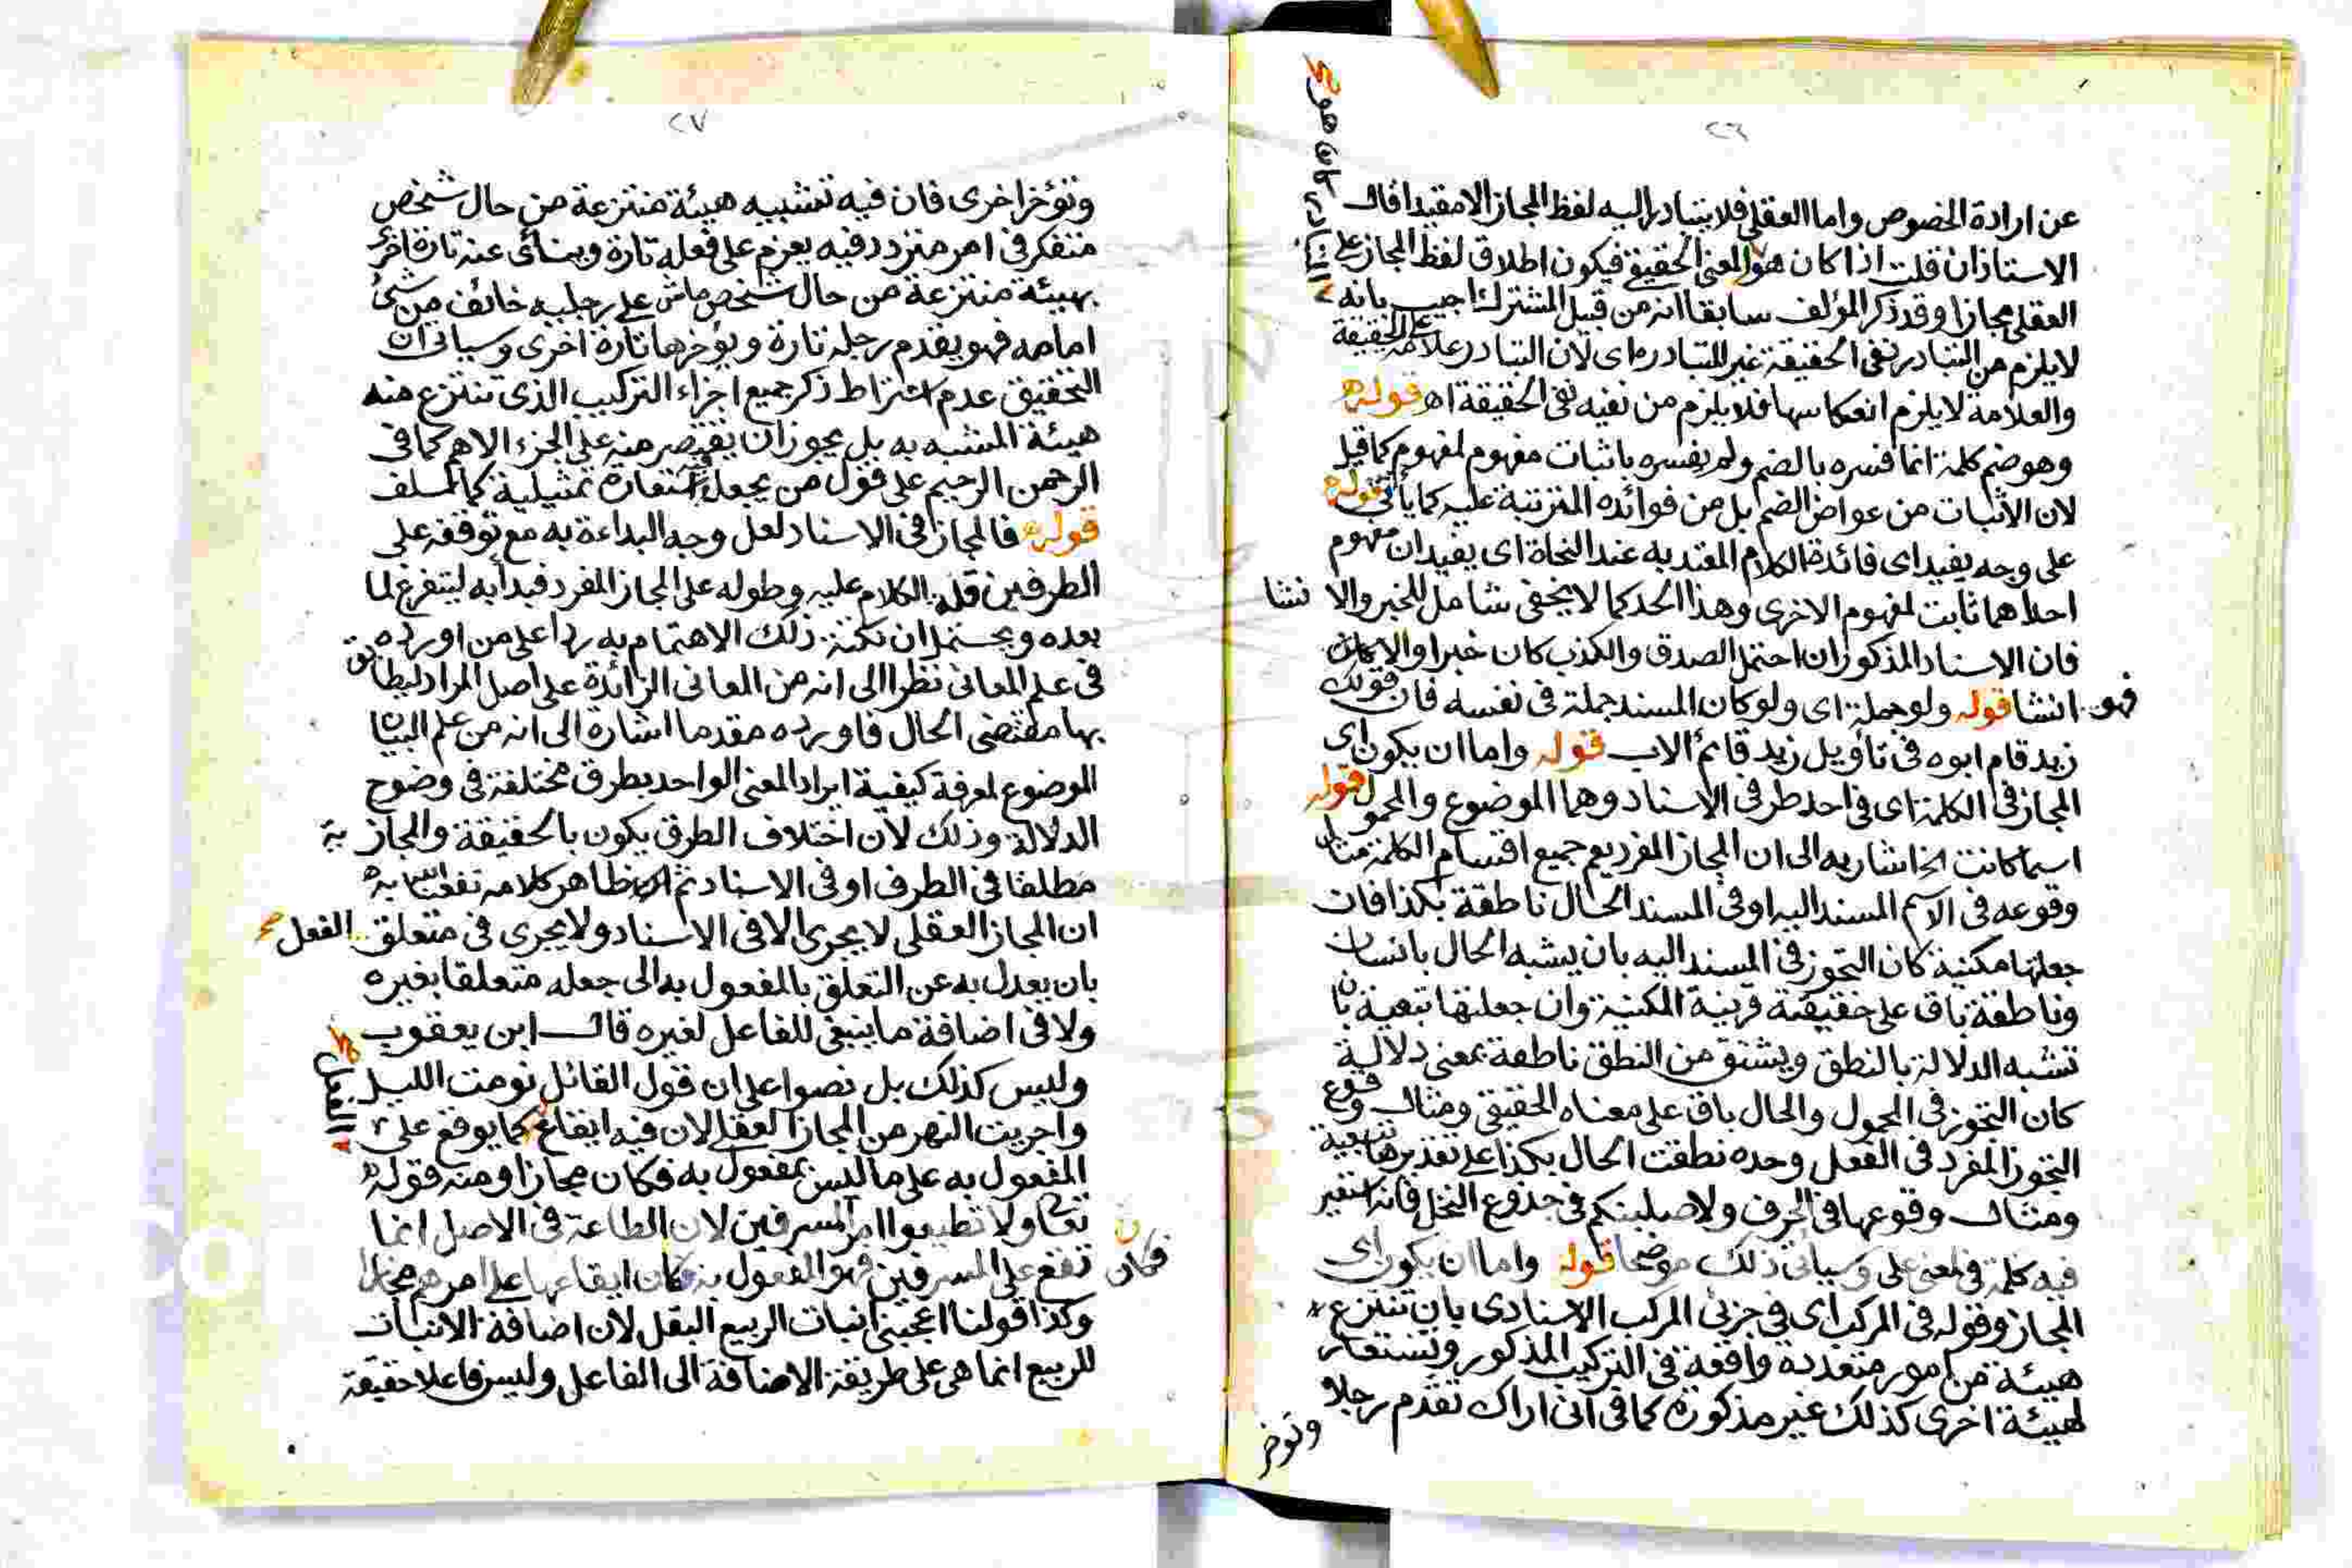 ٢٦
عن ارادة الخصوص واما العقلى فلا يتبادر اليه لفظ المجاز الا مقيدا قال
الاستاذ ان قلت اذا كان هو المعنى الحقيقى فيكون اطلاق لفظ المجاز على
العقلى مجازا وقد ذكر المؤلف سابقا انه من قبيل المشترك اجيب بانه
لا يلزم من التبادر نفى الحقيقة غير المتبادرة اى لان التبادر علامة الحقيقة
والعلامة لا يلزم انعكاسها فلا يلزم من نفيه نفى الحقيقة اه قوله
وهو ضم كلمة انما فسره بالضم ولم يفسره باثبات مفهوم لمفهوم كما قيل
لان الاثبات من عوارض الضم بل من فوائده المترتبة عليه كما يأتى قوله
على وجه يفيد اى فائدة الكلام المعتد به عند النحاة اى يفيد ان مفهوم
احداهما ثابت لمفهوم الاخرى وهذا الحد كما لا يخفى شامل للخبر والانشا
فان الاسناد المذكور ان احتمل الصدق والكذب كان خبرا والا كان
فهو انشا قوله ولو جملة اى ولو كان المسند جملة فى نفسه فان قولك
زيد قام ابوه فى تأويل زيد قائم الاب قوله واما ان يكون اى
المجاز فى الكلمة اى فى احد طرفى الاسناد وهما الموضوع والمحمول قوله
اسما كانت الخ اشار به الى ان المجاز المفرد يعم جميع اقسام الكلمة مثال
وقوعه فى الاسم المسند اليه او فى المسند الحال ناطقة بكذا فان
جعلتها مكنية كان التجوز فى المسند اليه بان يشبه الحال بانسان
وناطقة باق على حقيقته قرينة المكنية وان جعلتها تبعية بان
تشبه الدلالة بالنطق ويشتق من النطق ناطقة بمعنى دلالية
كان التجوز فى المحمول والحال باق على معناه الحقيقى ومثال وقوع
التجوز المفرد فى الفعل وحده نطقت الحال بكذا على تقديرها تبعية
ومثال وقوعها فى الحرف ولاصلبنكم فى جذوع النخل فانه استعير
فيه كلمة فى لمعنى على وسيأتى ذلك موضحا قوله واما ان يكون اى
المجاز وقوله فى المركب اى فى جزئى المركب الاسنادى بان تنتزع
هيئة من امور متعددة واقعة فى التركيب المذكور وتستعار
لهيئة اخرى كذلك غير مذكورة كما فى انى اراك تقدم رجلا
وتؤخر
٢٧
وتؤخر اخرى فان فيه تشبيه هيئة منتزعة من حال شخص
متفكر فى امر متردد فيه يعزم على فعله تارة ويتأنى عنه تارة اخرى
بهيئة منتزعة من حال شخص ماش على رجليه خائف من شئ
امامه فهو يقدم رجله تارة ويؤخرها تارة اخرى وسياتى ان
التحقيق عدم اشتراط ذكر جميع اجزاء التركيب الذى تنتزع منه
هيئة المشبه به بل يجوز ان يقتصر منه على الجزء الاهم كما فى
الرحمن الرحيم على قول من يجعل فيه استعارة تمثيلية كما سلف
قوله فالمجاز فى الاسناد لعل وجه البداءة به مع توقفه على
الطرفين قلة الكلام عليه وطوله على المجاز المفرد فبدأ به ليتفرغ لما
بعده ويحتمل ان نكتة ذلك الاهتمام به ردا على من اورده
فى علم المعانى نظرا الى انه من المعانى الزائدة على اصل المراد ليطابق
بها مقتضى الحال فاورده مقدما اشارة الى انه من علم البيان
الموضوع لمعرفة كيفية ايراد المعنى الواحد بطرق مختلفة فى وضوح
الدلالة وذلك لان اختلاف الطرق يكون بالحقيقة والمجاز
مطلقا فى الطرف او فى الاسناد ثم ظاهر كلامه
ان المجاز العقلى لا يجرى الا فى الاسناد ولا يجرى فى متعلق الفعل
بان يعدل به عن التعلق بالمفعول به الى جعله متعلقا بغيره
ولا فى اضافة ما ينبغى للفاعل لغيره قال ابن يعقوب
وليس كذلك بل نصوا على ان قول القائل نومت الليل
واجريت النهر من المجاز العقلى لان فيه ايقاع ما يوقع على
المفعول به على ما ليس بمفعول به فكان مجازا ومنه قوله
تعالى ولا تطيعوا امر المسرفين لان الطاعة فى الاصل انما
تقع على المسرفين فهو المفعول به فكان ايقاعها على امرهم مجازا
وكذا قولنا اعجبنى انبات الربيع البقل لان اضافة الانبات
للربيع انما هى على طريقة الاضافة الى الفاعل وليس فاعلا حقيقة